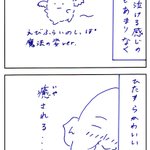 泣ける感じの
でもあまりなく
えびふらいのし、ぽ°
魔法の苔ver.
ひたすらかわいい
癒される…